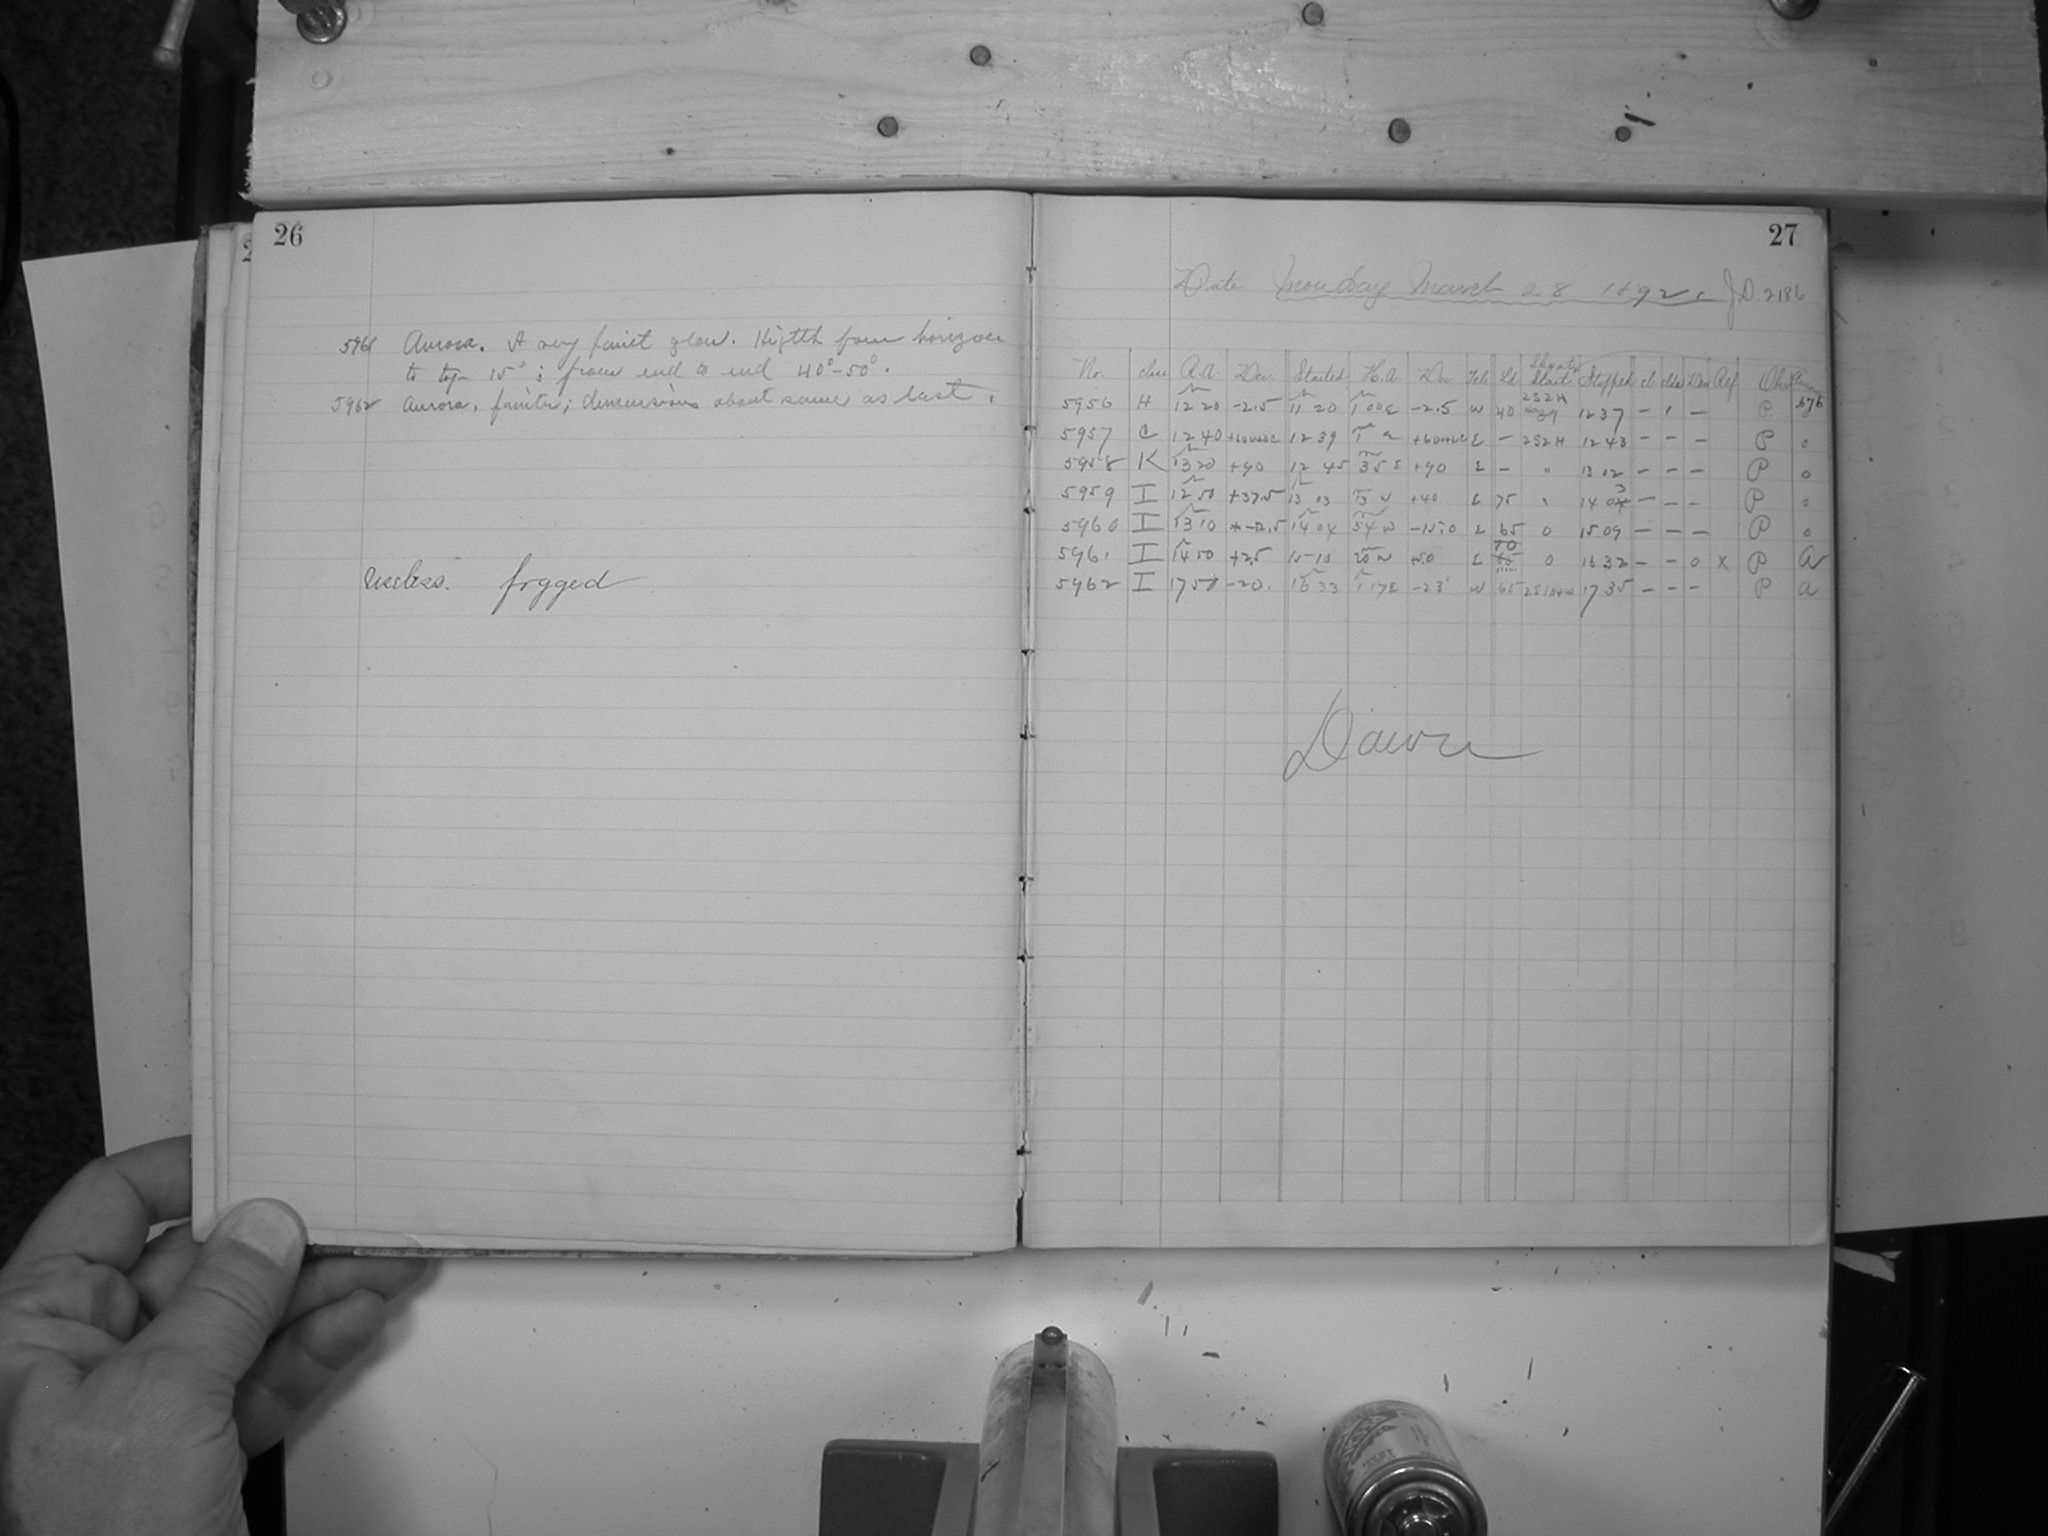 26
5961 Aurora. A very faint glow. Higtth from horizon
to top 15°; from end to end 40°-50°.
5962 Aurora, fainter; dimensions about same as last.
Useless. fogged
27
Date Monday March 28 1892. J.D. 2186
No. class R.A. Dec. Started H.A. Dec. Tel. Sky at Start Stopped cl. Ref. Obs.
5956 H 12 20 -2.5 11 20 1 00 E -2.5 W 40 2S2H 12 37 - 1 - P .676
5957 C 12 40 12 39 E - 2S2H 12 43 - - - P 0
5958 K 13 20 +90 12 45 35 E +90 E - " 13 02 - - - P 0
5959 I 12 50 +37.5 13 03 13 W +40 E 75 " 14 03 - - - P 0
5960 I 13 10 14 04 54 W E 65 0 15 09 - - - P 0
5961 I 14 50 +2.5 15 10 20 W E 70 0 16 32 - - 0 X P a
5962 I 17 50 -20. 16 33 1 17 E -23° W 65 17 35 - - - P a
Dawn